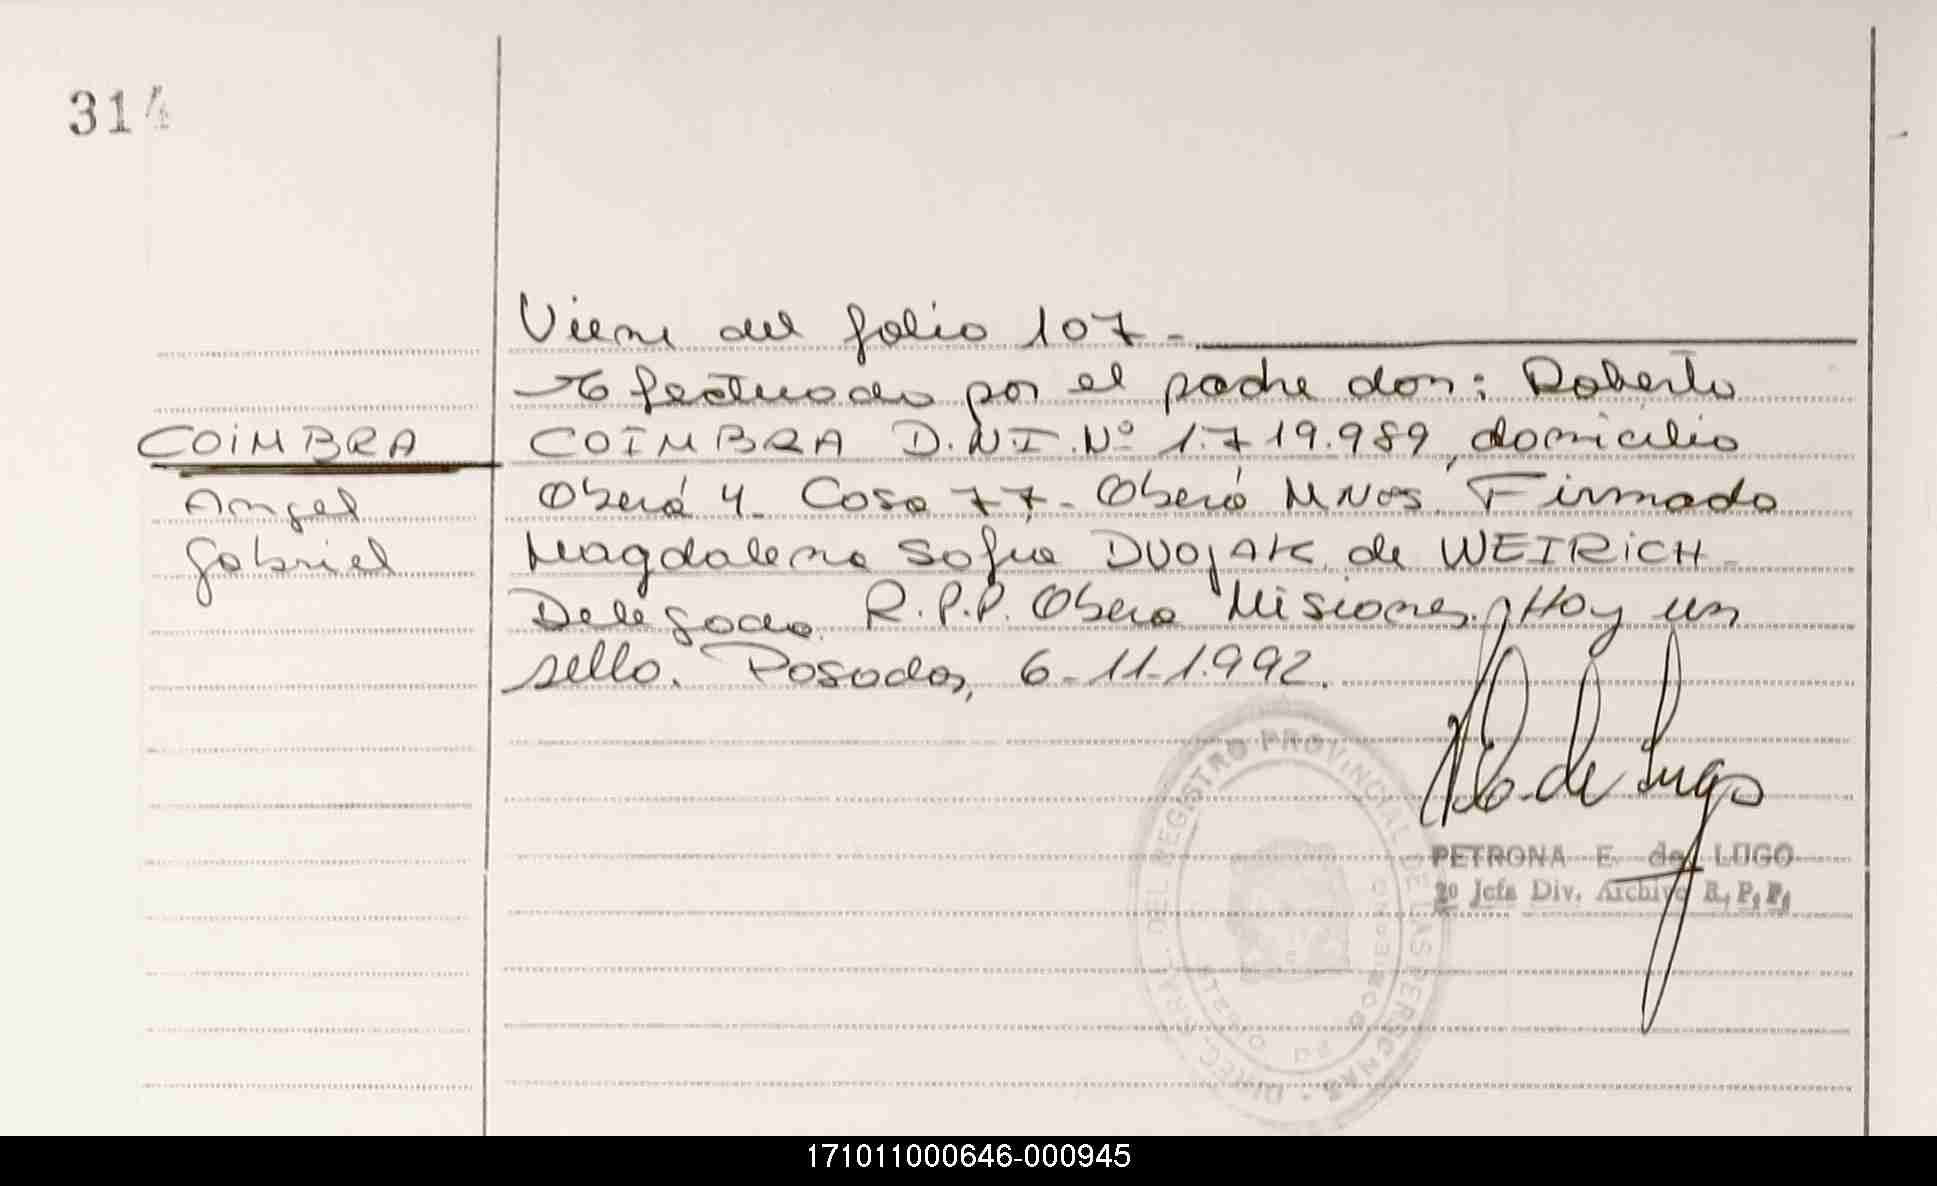 314
Viene del folio 107.-
Efectuado por el padre don: Roberto
COIMBRA
COIMBRA D.N.I. Nº 1.719.989, domicilio
Angel
Oberá 4- Casa 77- Oberá Mnes. Firmado
Gabriel
Magdalena Sofia DVOJAK de WEIRICH-
Delegada R.P.P. Obera Misiones. Hay un
sello. Posadas, 6-11-1.992.
de Lugo
PETRONA E. de LUGO
2º Jefa Div. Archivo R. P. P.
DIREC. GRAL. DEL REGISTRO PROVINCIAL DE LAS PERSONAS
171011000646-000945